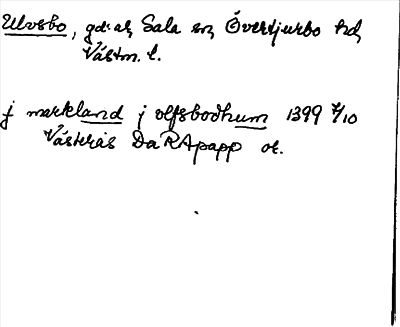 Ulvsbo, gd:ar, Sala sn, Övertjurbo hd,
Västm. l.
j markland j olfsbodhum 1399 7/10
Västerås DaRApapp or.